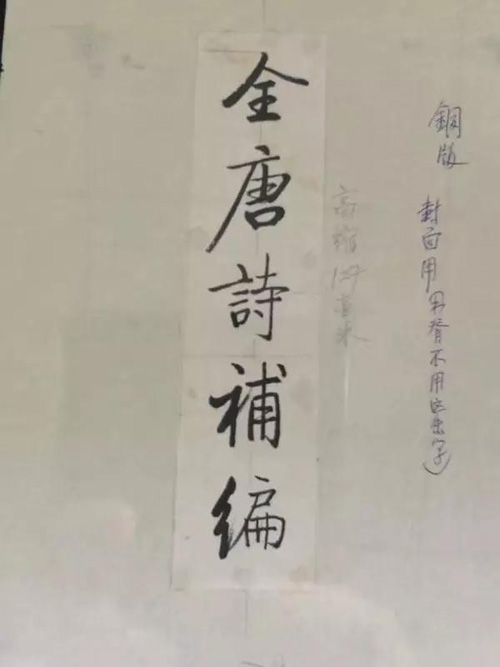 銅版
封面用 书脊不用 字)
高缩 毫米
全唐詩補編